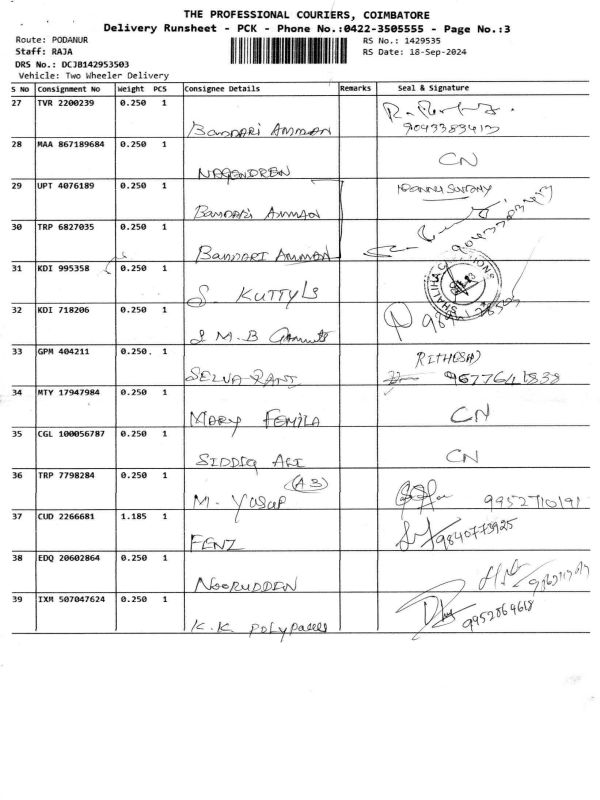 THE PROFESSIONAL COURIERS, COIMBATORE
Delivery Runsheet - PCK - Phone No.:0422-3505555 - Page No.:3
Route: PODANUR RS No.: 1429535
Staff: RAJA RS Date: 18-Sep-2024
DRS No.: DCJB142953503
Vehicle: Two Wheeler Delivery
S No Consignment No Weight PCS Consignee Details Remarks Seal & Signature
27 TVR 2200239 0.250 1
BANDARI AMMAN 9043383413
28 MAA 867189684 0.250 1 CN
NAGENDREN
29 UPT 4076189 0.250 1
BANDARI AMMAN
30 TRP 6827035 0.250 1
BANDARI AMMAN
31 KDI 995358 0.250 1
S. KUTTY
32 KDI 718206 0.250 1
M.B
33 GPM 404211 0.250. 1
SELVA RANI 9677641838
34 MTY 17947984 0.250 1 CN
MARY FEMILA
35 CGL 100056787 0.250 1 CN
SIDDIQ ALI
36 TRP 7798284 0.250 1 (A3)
M. YUSUF 9952710191
37 CUD 2266681 1.185 1 9840773925
FENZ
38 EDQ 20602864 0.250 1
NOORUDDEN
39 IXM 507047624 0.250 1 9952864618
K.K POLYPACKS